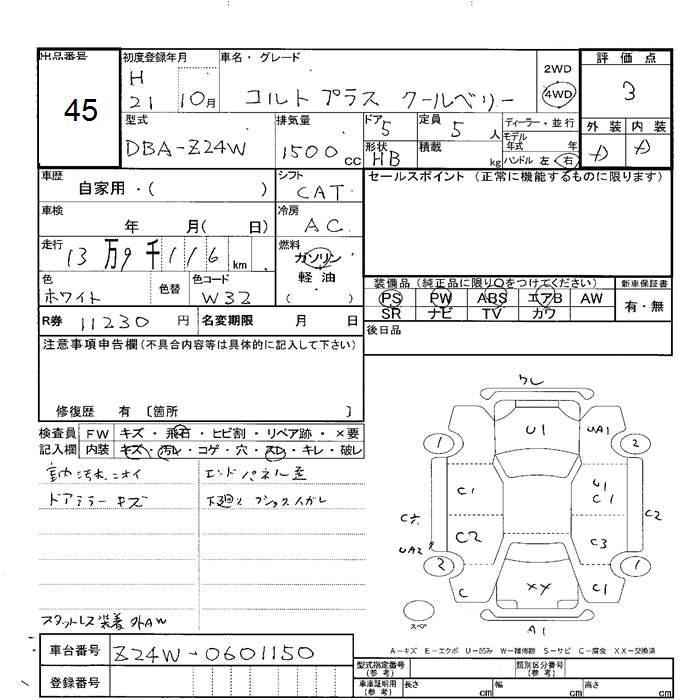 出品番号
45
初度登録年月
H
21 10月
車名・グレード
コルト プラス クールベリー
2WD
4WD
評価点
3
外装 内装
型式
DBA-Z24W
排気量
1500cc
ドア
5
形状
HB
定員
5人
積載
kg
ディーラー・並行
モデル
年式 年
ハンドル 左 右
車歴
自家用・( )
シフト
CAT
セールスポイント (正常に機能するものに限ります)
車検
年 月( 日)
冷房
AC
走行
13万9千116km
燃料
ガソリン
軽油
( )
色
ホワイト
色替
色コード
W32
R券 11230円
名変期限 月 日
装備品 (純正品に限り○をつけてください)
PS PW ABS エアB AW
SR ナビ TV カワ
新車保証書
有・無
後日品
注意事項申告欄(不具合内容等は具体的に記入して下さい)
修復歴 有 〔箇所 〕
検査員
記入欄
FW キズ・飛石・ヒビ割・リペア跡・×要
内装 キズ・汚レ・コゲ・穴・スレ・キレ・破レ
室内汚れニオイ
ドアミラーキズ
エンドパネル歪
スタットレス装着 外AW
ワレ
U1
UA1
1
2
C1
U1
C1
C2
C2
C3
2
1
C
XX
C1
スペア
A1
A-キズ E-エクボ U-凹み W-補修跡 S-サビ C-腐食 XX-交換済
車台番号 Z24W-0601150
登録番号
型式指定番号
(参考)
類別区分番号
(参考)
車庫証明用
(参考)
長さ cm
幅 cm
高さ cm